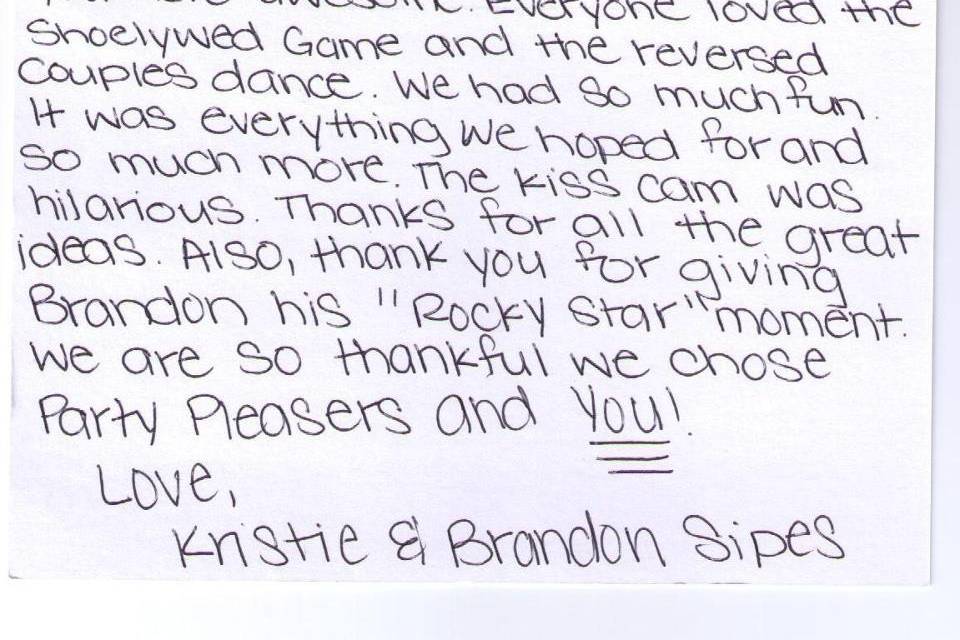 awesome. Everyone loved the
Shoelywed Game and the reversed
couples dance. We had so much fun.
It was everything we hoped for and
so much more. The kiss cam was
hilarious. Thanks for all the great
ideas. Also, thank you for giving
Brandon his "Rocky Star" moment.
We are so thankful we chose
Party Pleasers and You!
Love,
Kristie & Brandon Sipes